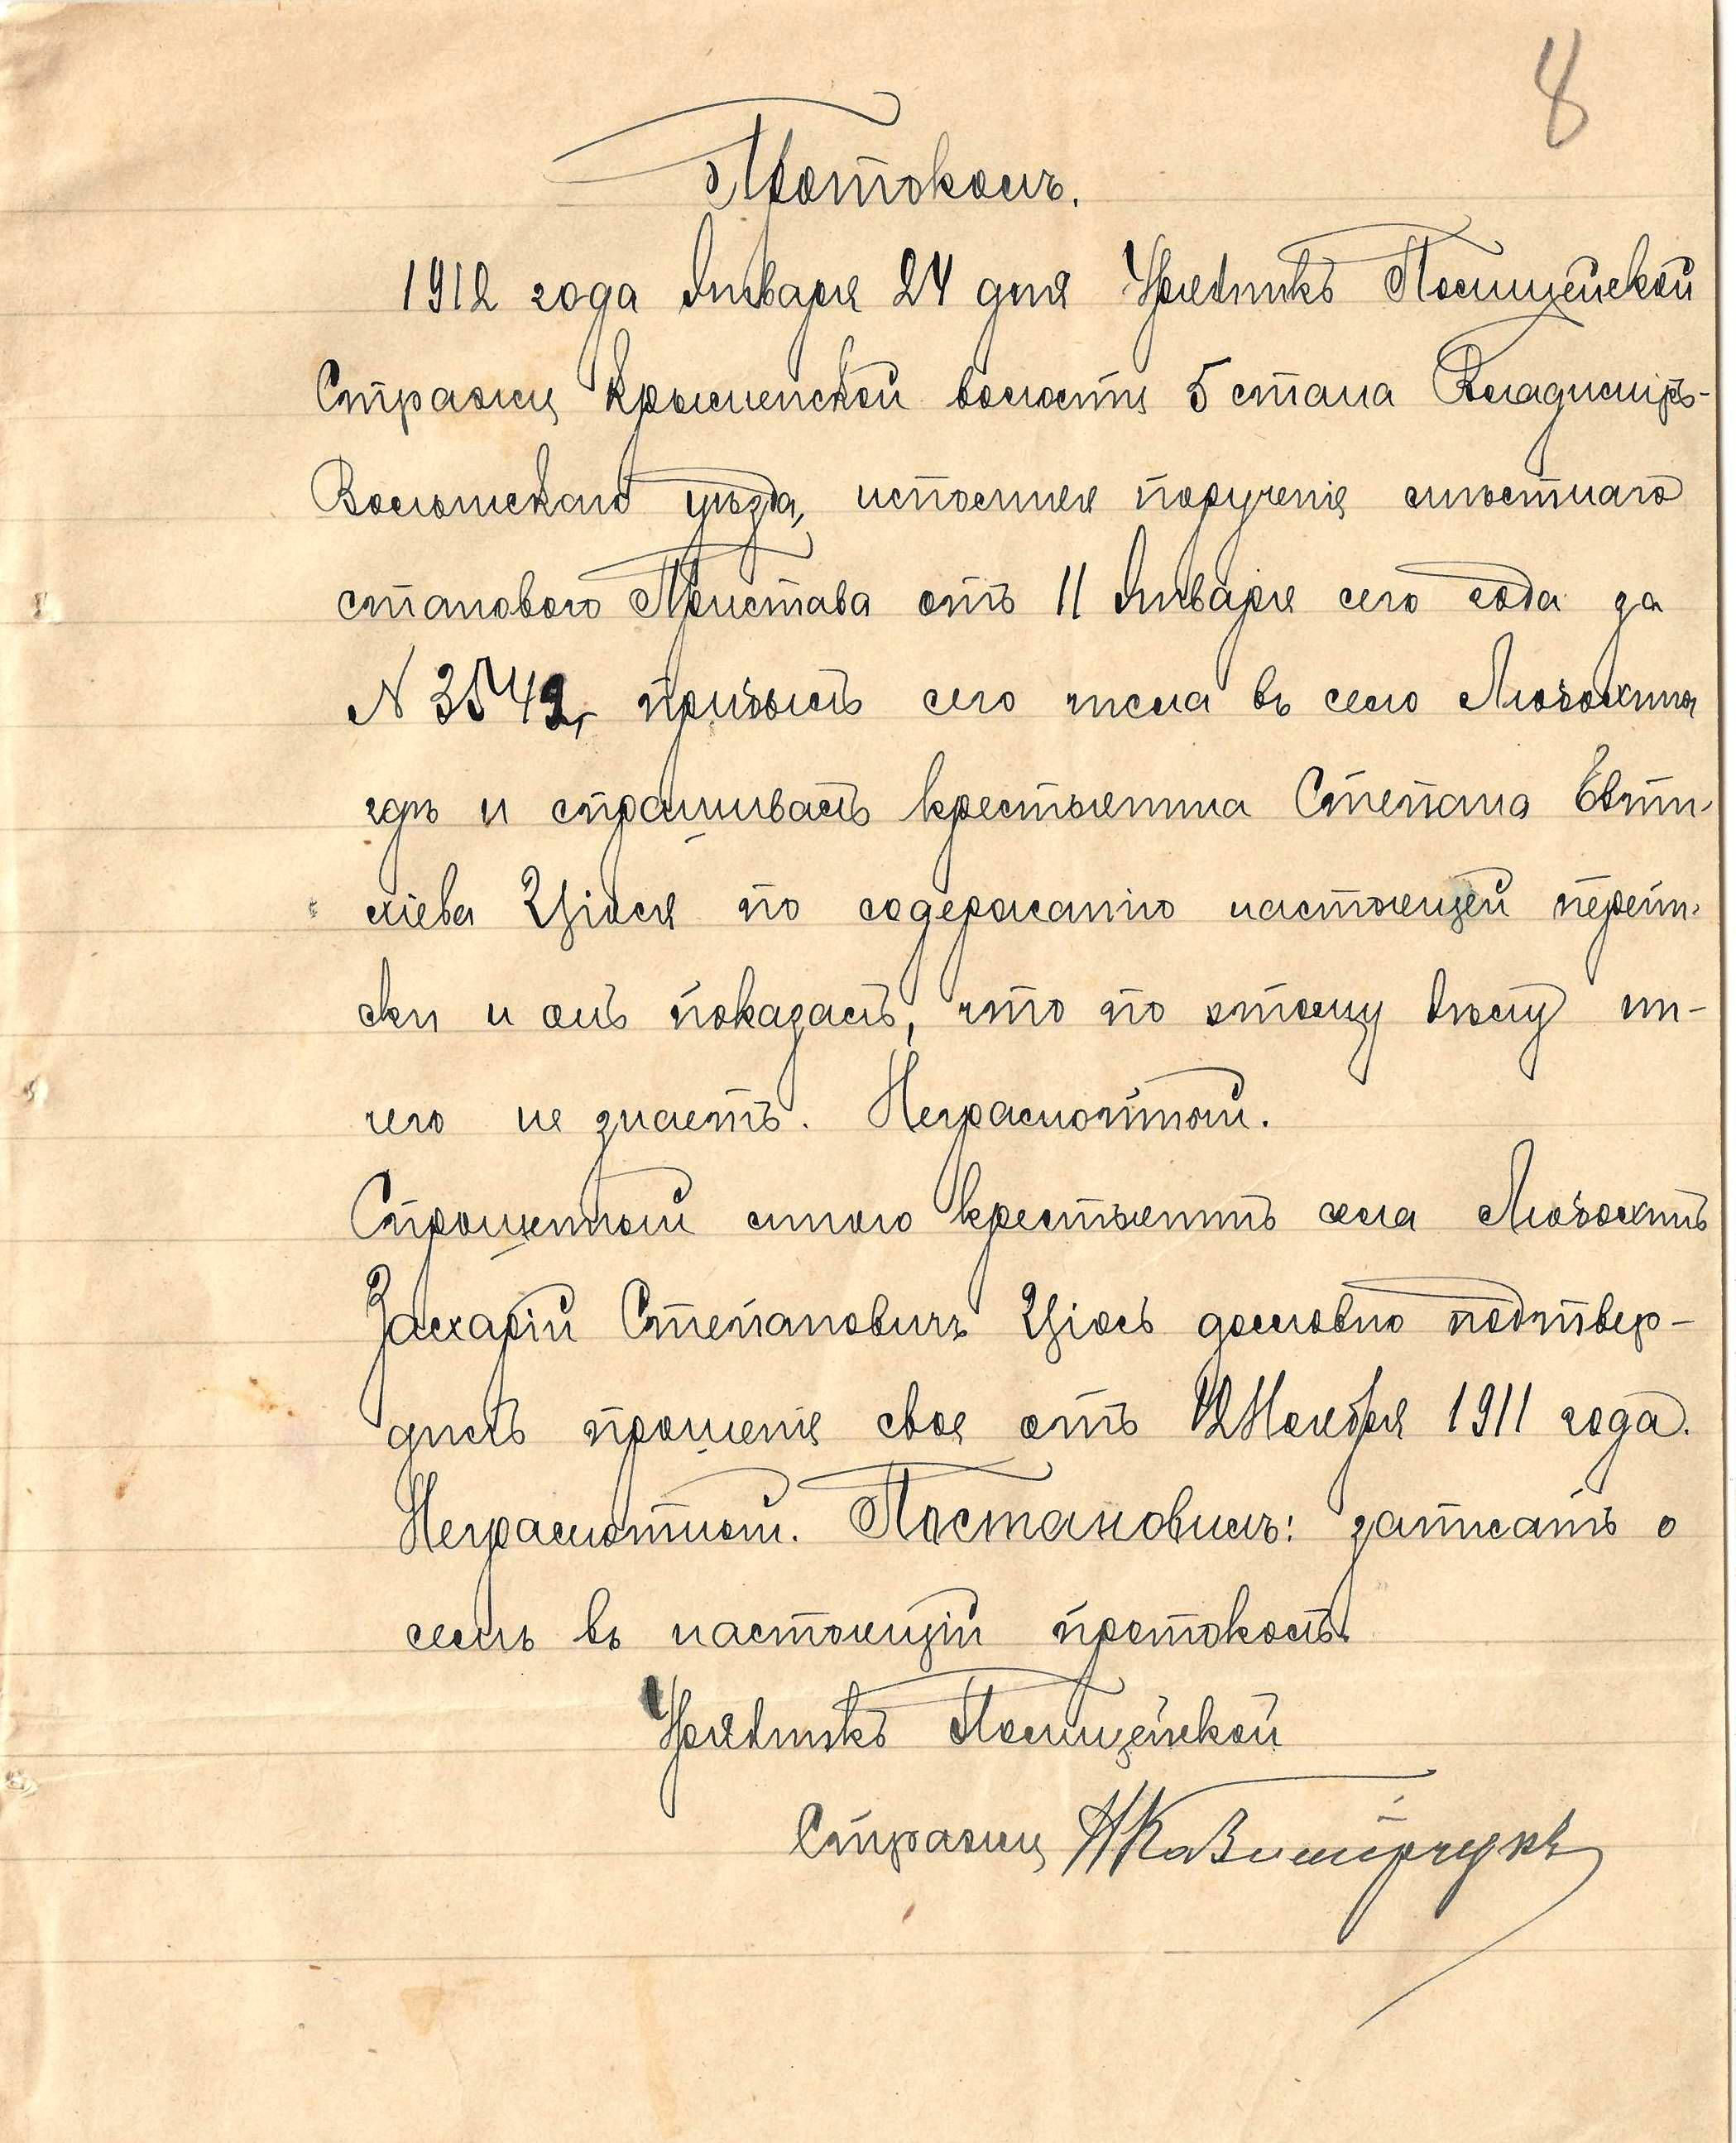 8
Протоколъ.
1912 года Января 24 дня Урядникъ Полицейской
Стражи Крымненской волости 5 стана Владимiръ-
Волынскаго уѣзда, исполняя порученiя мѣстнаго
становаго Пристава отъ 11 Января сего года за
N 3542, прибылъ сего числа въ село Любохины
гдѣ и спрашивалъ крестьянина Степана Евти-
хiева Цiося по содержанiю настоящей перепи-
ски и онъ показалъ, что по этому дѣлу ни-
чего не знаетъ. Неграмотный.
Спрошенный мною крестьянинъ села Любохинъ
Захарiй Степановичъ Цiось дословно подтвер-
дилъ прошенiя свое отъ 12 Ноября 1911 года.
Неграмотный. Постановилъ: записать о
семъ въ настоящiй протоколъ.
Урядникъ Полицейской
Стражи